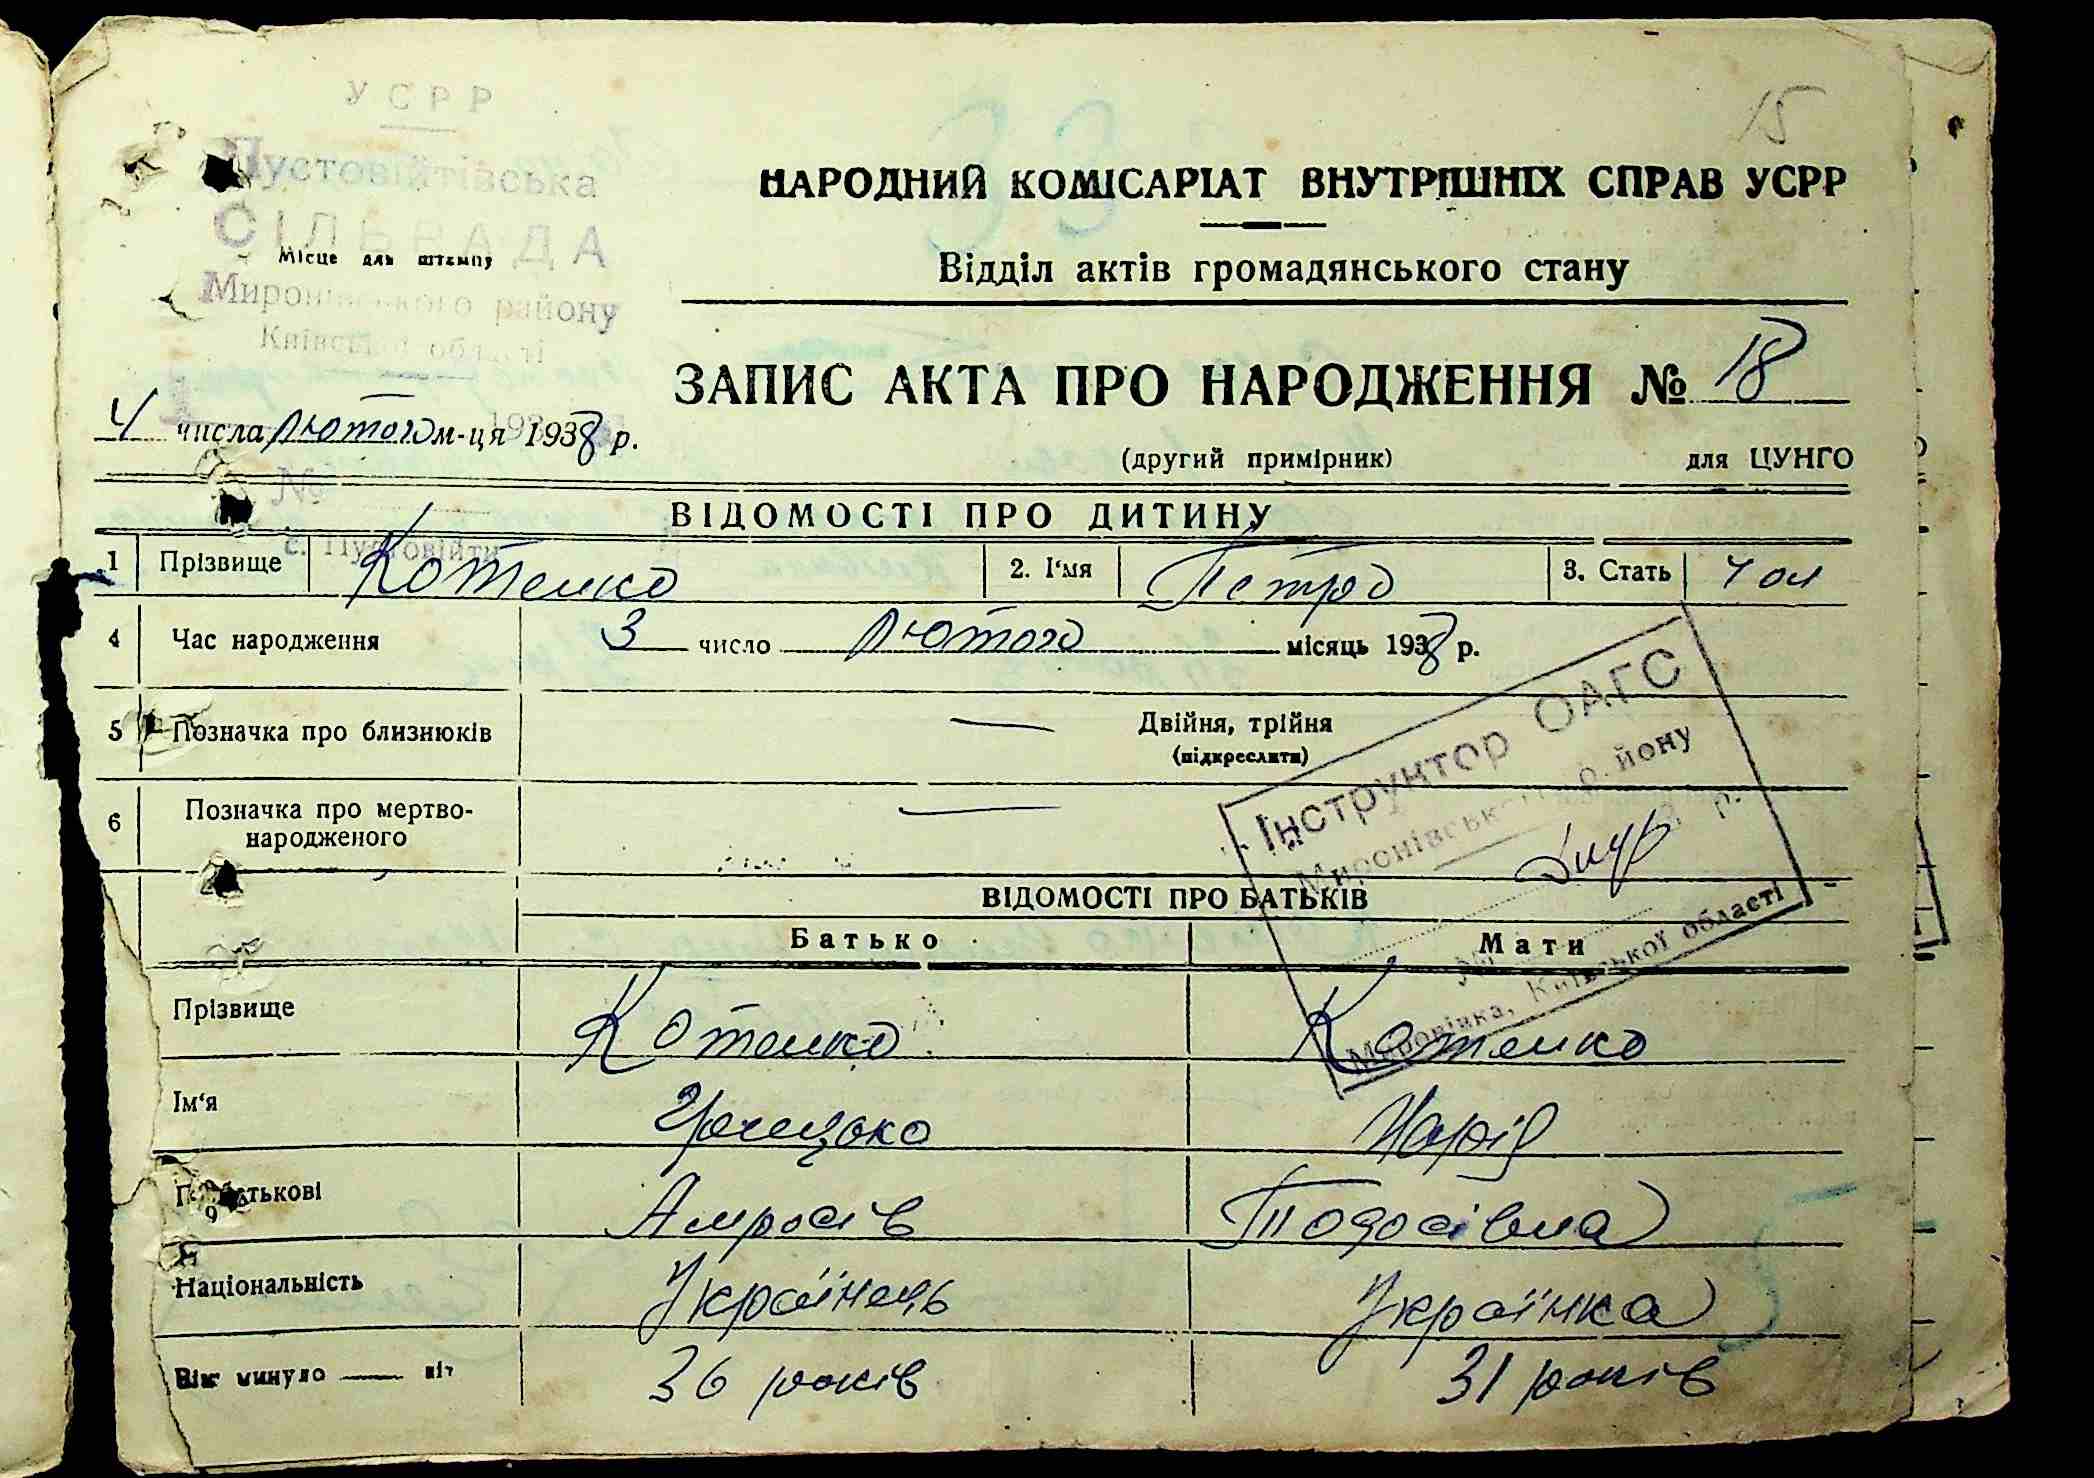 15
УСРР
Пустовійтівська
СІЛЬРАДА
Місце для штампу
Миронівського району
Київської області
НАРОДНИЙ КОМІСАРІАТ ВНУТРІШНІХ СПРАВ УСРР
Відділ актів громадянського стану
ЗАПИС АКТА ПРО НАРОДЖЕННЯ № 18
4 числа лютого м-ця 1938 р.
(другий примірник) для ЦУНГО
№
с. Пустовійти
ВІДОМОСТІ ПРО ДИТИНУ
1 Прізвище Котенко 2. І'мя Петро 3. Стать чол
4 Час народження 3 число лютого місяць 1938 р.
5 Позначка про близнюків — Двійня, трійня
(підкреслити)
6 Позначка про мертво-
народженого —
Інструктор ОАГС
Миронівського району
Миронівка, Київської області
ВІДОМОСТІ ПРО БАТЬКІВ
Батько Мати
Прізвище Котенко Котенко
Ім'я Грицько Марія
По батькові Амросів Тодосівна
9
Національність Українець Українка
Вік минуло — літ 36 років 31 років